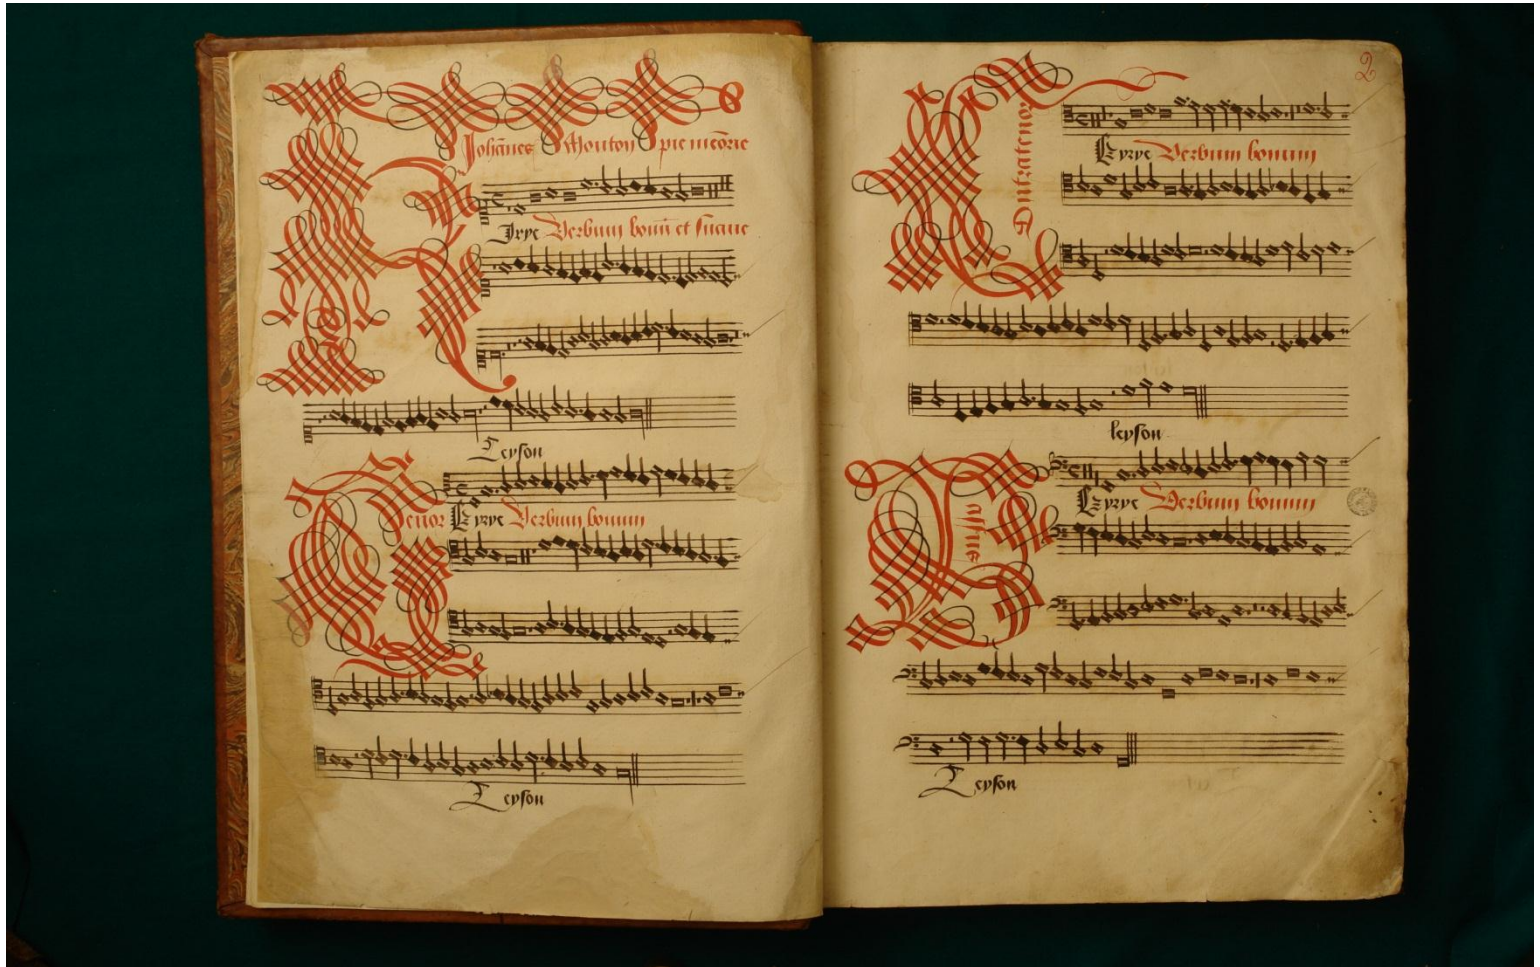 Johānes Mouton pie mēorie
Kyrye Verbum bonū et suaue
Leyson
Tenor Kyrye Verbum bonum
Leyson
2
Contratenor
Kyrye Verbum bonum
leyson
Bassus
Kyrye Verbum bonum
Leyson